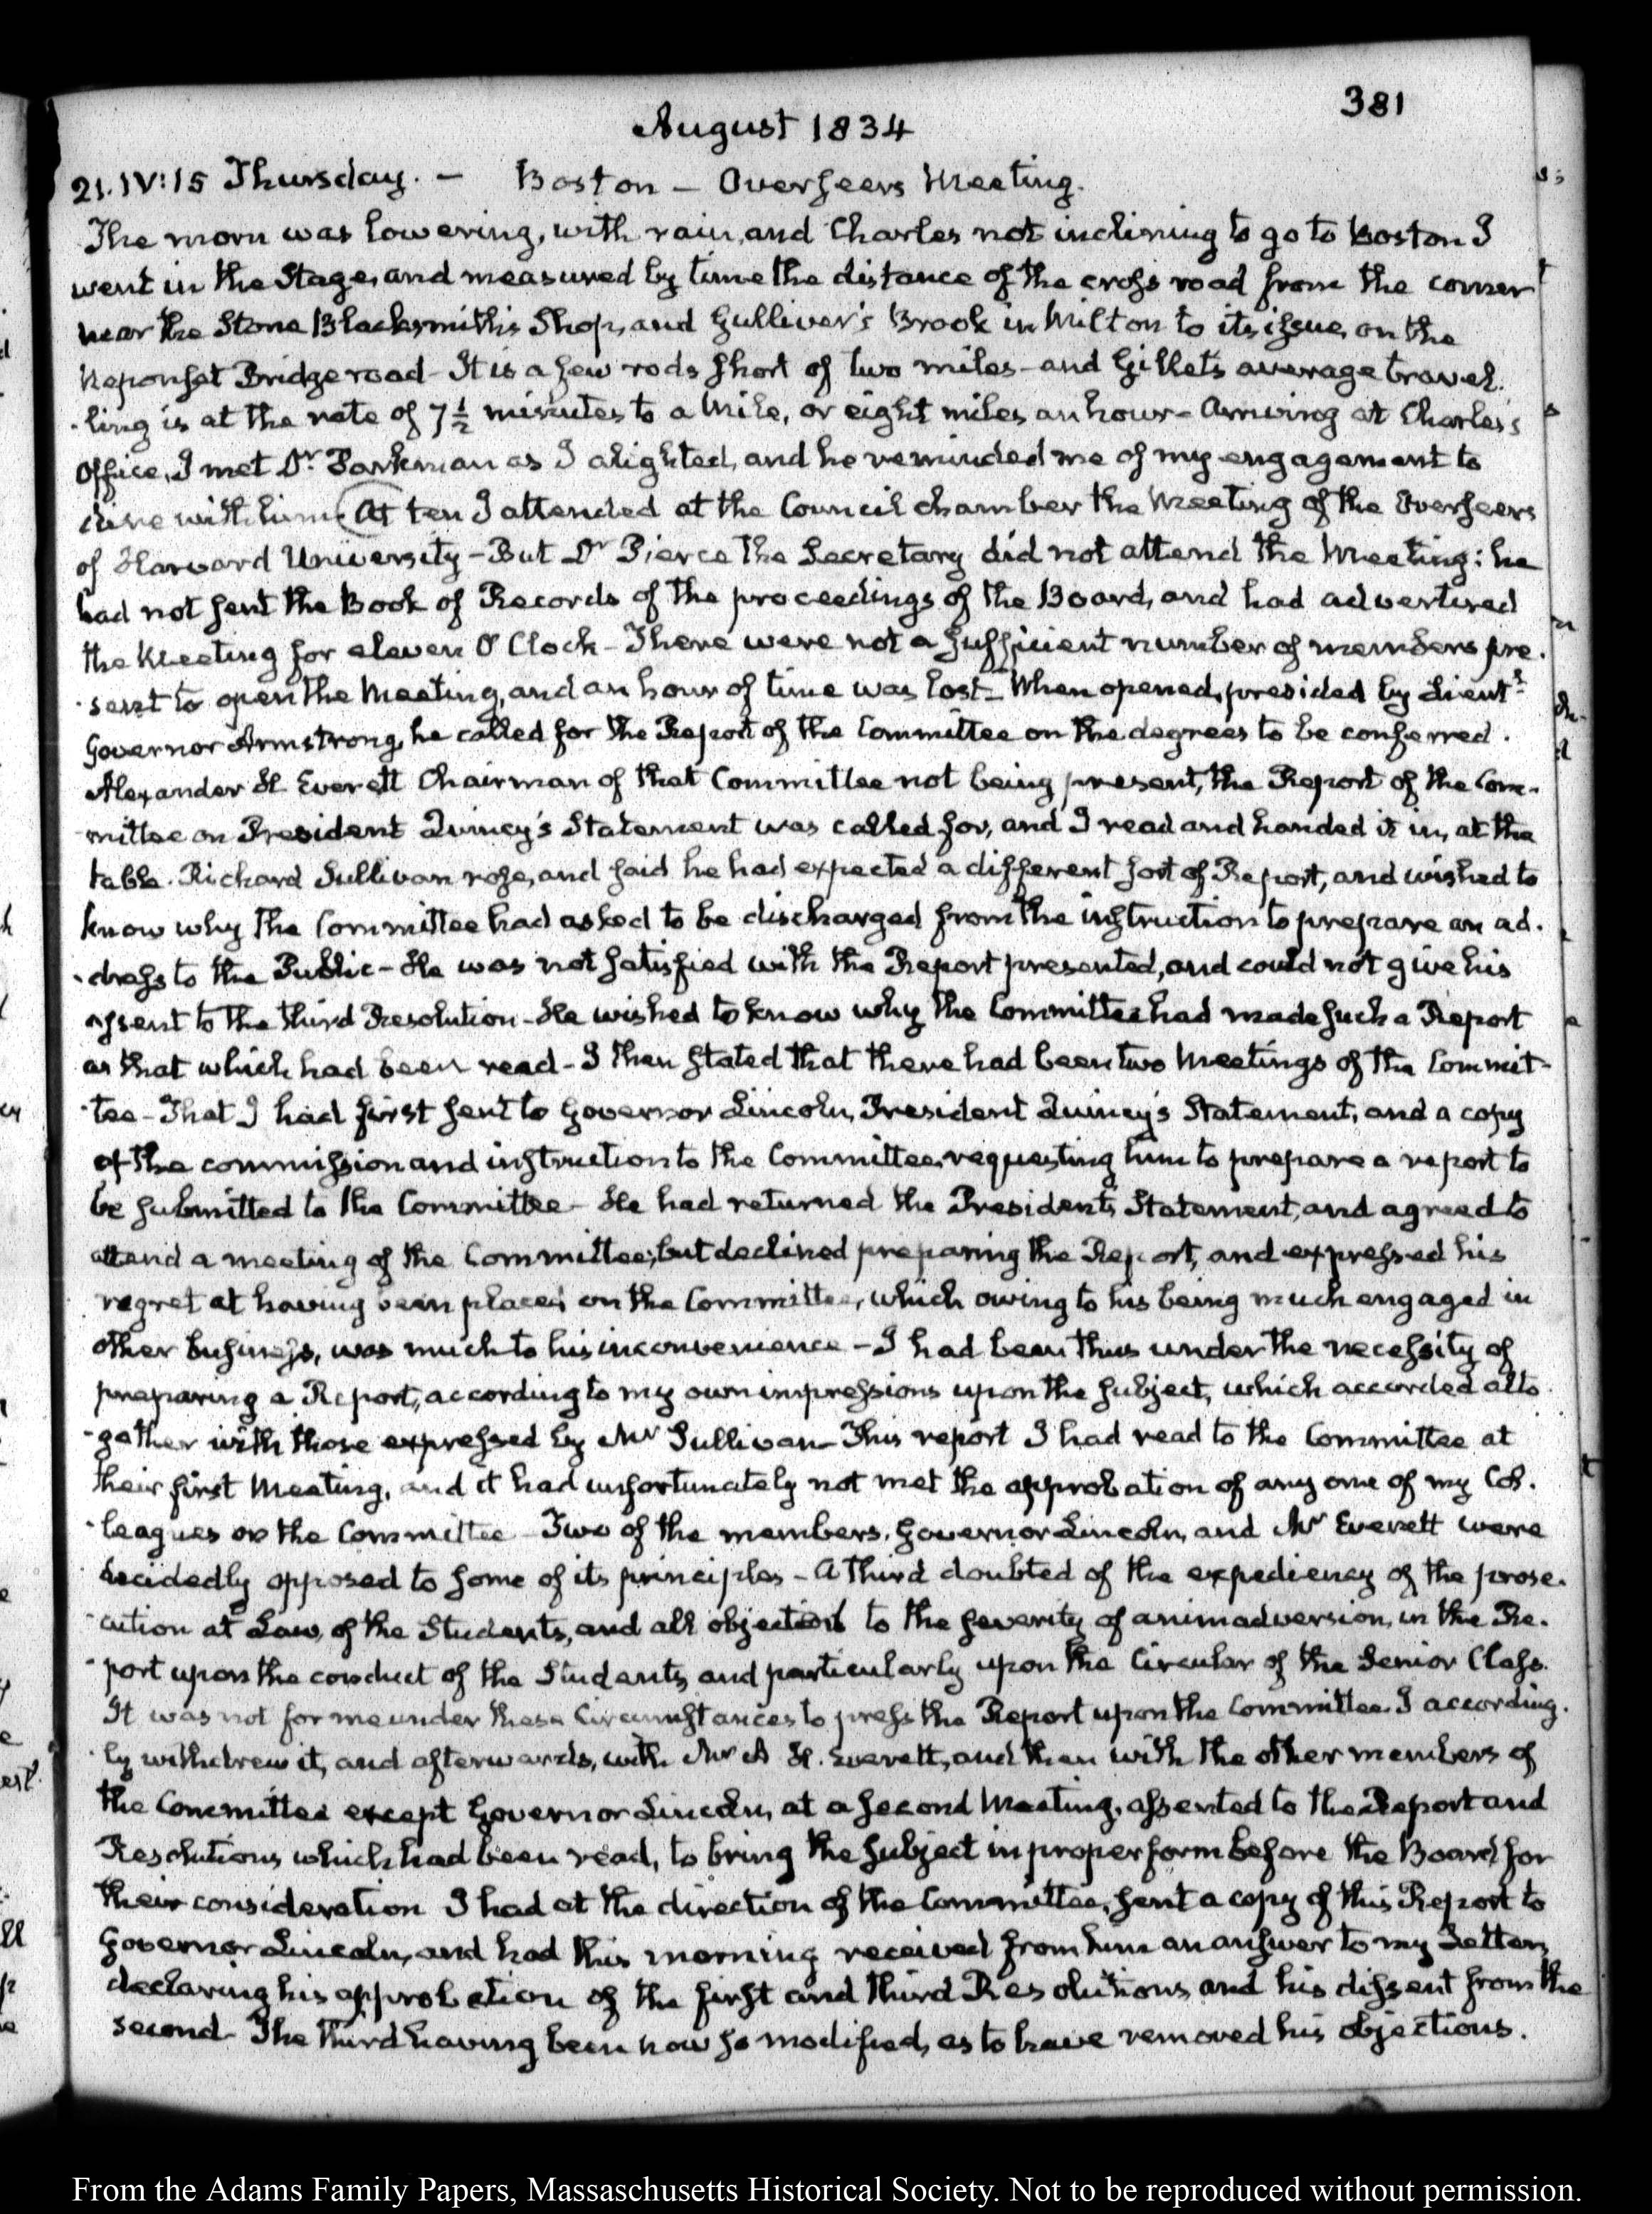 381
August 1834
21. IV:15 Thursday. — Boston — Overseers Meeting.
The morn was lowering, with rain, and Charles not inclining to go to Boston I
went in the Stage, and measured by time the distance of the cross road from the corner
near the Stone Blacksmith's Shop, and Gulliver's Brook in Milton to its issue, on the
Neponset Bridge road — It is a few rods short of two miles — and Gillet's average travel-
-ling is at the rate of 7½ minutes to a Mile, or eight miles an hour — Arriving at Charles's
Office, I met Dr. Parkman as I alighted, and he reminded me of my engagement to
dine with him. At ten I attended at the Council chamber the Meeting of the Overseers
of Harvard University — But Dr Pierce the Secretary did not attend the Meeting: he
had not sent the Book of Records of the proceedings of the Board, and had advertised
the Meeting for eleven O'Clock — There were not a sufficient number of members pre-
-sent to open the Meeting, and an hour of time was lost — When opened, presided by Lieut:t
Governor Armstrong, he called for the Report of the Committee on the degrees to be conferred.
Alexander H Everett Chairman of that Committee not being present, the Report of the Com-
-mittee on President Quincy's Statement was called for, and I read and handed it in, at the
table. Richard Sullivan rose, and said he had expected a different sort of Report, and wished to
know why the Committee had asked to be discharged from the instruction to prepare an ad-
-dress to the Public — He was not satisfied with the Report presented, and could not give his
assent to the third Resolution — He wished to know why the Committee had made such a Report
as that which had been read — I then stated that there had been two Meetings of the Commit-
-tee — That I had first sent to Governor Lincoln, President Quincy's Statement, and a copy
of the commission and instruction to the Committee, requesting him to prepare a report to
be submitted to the Committee — He had returned the President's Statement, and agreed to
attend a meeting of the Committee; but declined preparing the Report, and expressed his
regret at having been placed on the Committee, which owing to his being much engaged in
other business, was much to his inconvenience — I had been thus under the necessity of
preparing a Report, according to my own impressions upon the subject, which accorded alto-
-gether with those expressed by Mr Sullivan — This report I had read to the Committee at
their first Meeting, and it had unfortunately not met the approbation of any one of my Col-
-leagues on the Committee — Two of the members, Governor Lincoln, and Mr Everett were
decidedly opposed to some of its principles — A third doubted of the expediency of the prose-
-cution at Law, of the Students, and all objected to the severity of animadversion, in the Re-
-port upon the conduct of the Students, and particularly upon the Circular of the Senior Class.
It was not for me under these Circumstances to press the Report upon the Committee. I according-
-ly withdrew it, and afterwards, with Mr A H. Everett, and then with the other members of
the Committee except Governor Lincoln, at a second Meeting, assented to the Report and
Resolutions which had been read, to bring the subject in proper form before the Board for
their consideration I had at the direction of the Committee, sent a copy of this Report to
Governor Lincoln, and had this morning received from him an answer to my Letter,
declaring his approbation of the first and third Resolutions and his dissent from the
second — The third having been now so modified, as to have removed his objections.
From the Adams Family Papers, Massaschusetts Historical Society. Not to be reproduced without permission.